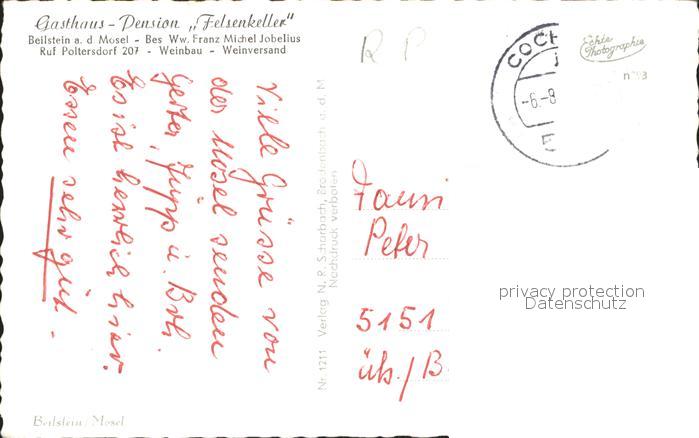 Gasthaus - Pension „Felsenkeller"
Beilstein a. d. Mosel - Bes Ww. Franz Michel Jobelius
Ruf Poltersdorf 207 - Weinbau - Weinversand
Viele Grüsse von
der Mosel senden
Jupp u.
Es ist herrlich hier.
Essen sehr gut.
Beilstein/Mosel
Nr. 1211 Verlag N. P. Scharbach, Bredenbach a. d. M
Nachdruck verboten
R P
COCH
-6.-8
Echte
Photographie
n°93
Fami
Peter
5151
üb./B
privacy protection
Datenschutz